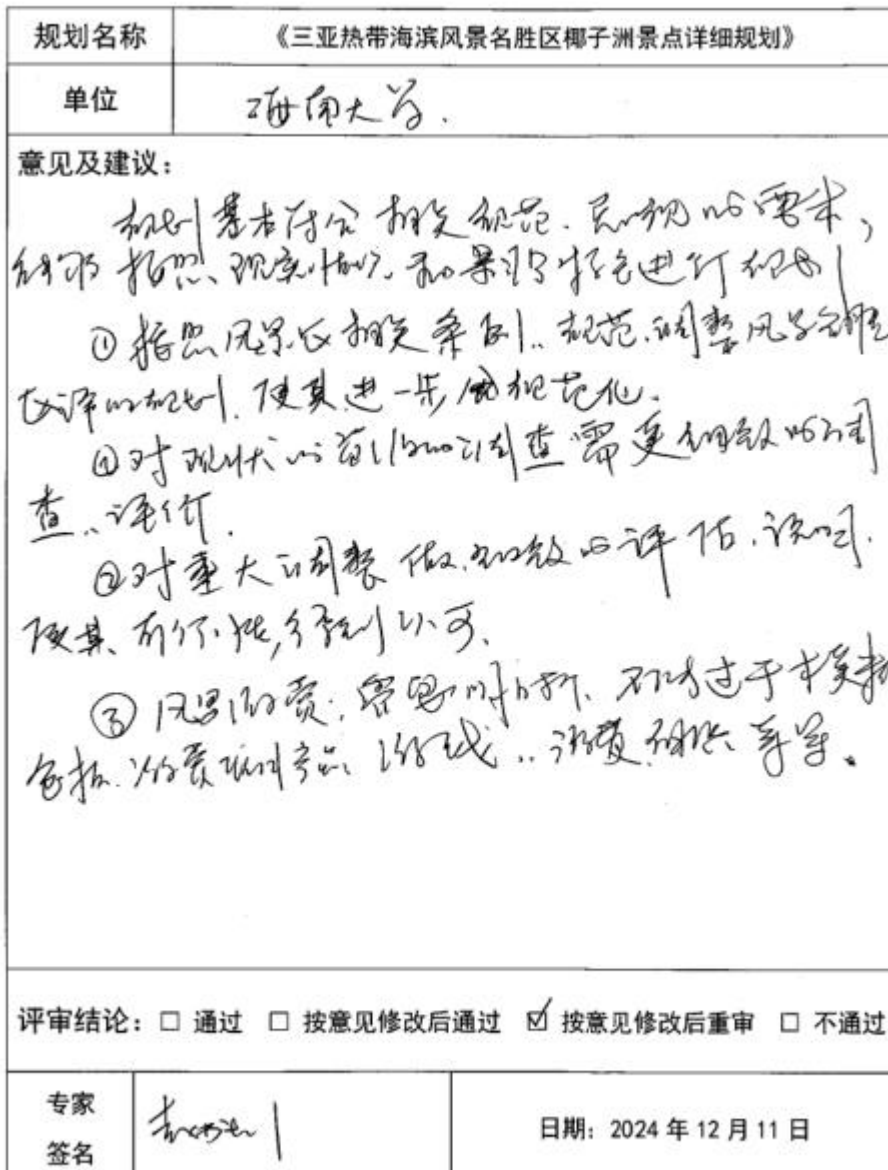 规划名称 《三亚热带海滨风景名胜区椰子洲景点详细规划》
单位 海南大学.
意见及建议:
规划基本符合相关规范、总规的要求,
能够按照现实情况和景源特色进行规划
①按照风景区相关条例、规范,调整风景名胜
区详细规划,使其进一步规范化.
②对现状的调查需更细致的调
查、评价.
②对重大调整做细致的评估、说明.
使其可行性,得到认可.
③风景游赏, 不过于
包括游赏 产品、游线、 等等。
评审结论: □ 通过 □ 按意见修改后通过 ☑ 按意见修改后重审 □ 不通过
专家
签名
日期: 2024 年 12 月 11 日